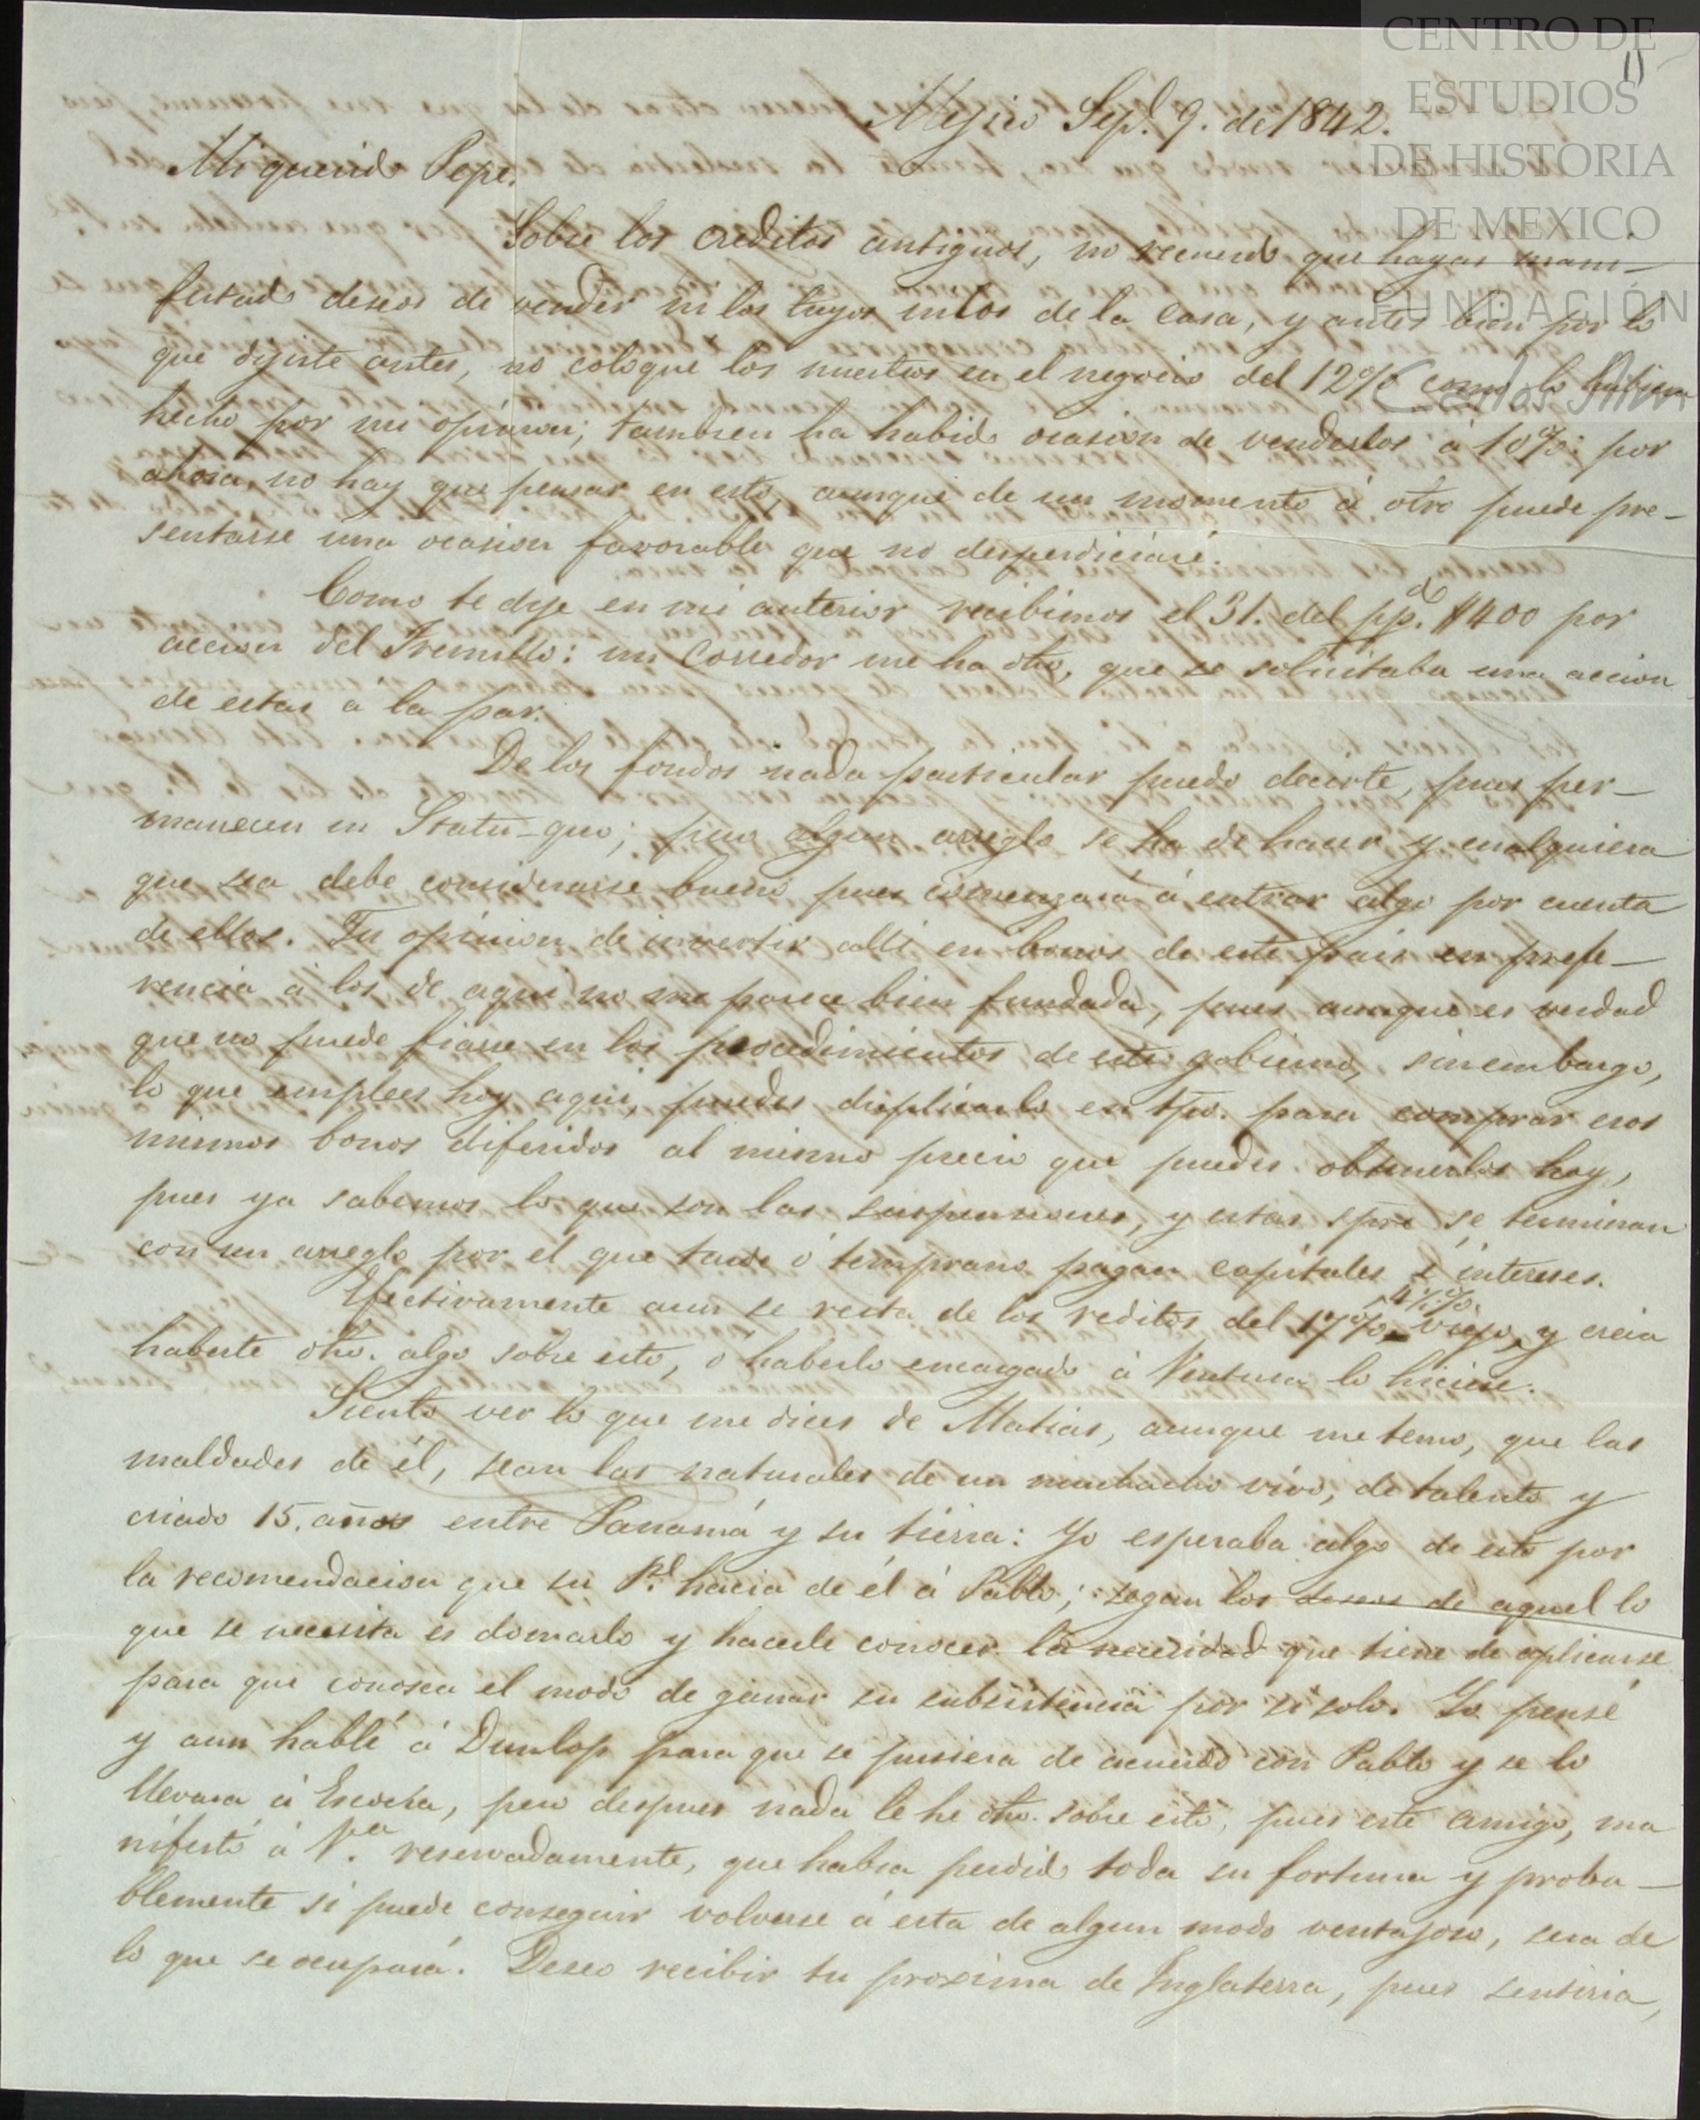 CENTRO DE
ESTUDIOS
DE HISTORIA
DE MEXICO
FUNDACIÓN
Carlos Slim
11
Mejico Sepe. 9. de 1842.
Mi querido Pepe.
Sobre los creditos antiguos, no recuerdo que hayas mani-
festado deseos de vender ni los tuyos ni los de la casa, y antes bien por lo
que dijiste antes, no coloque los nuestros en el negocio del 12% como lo hubiera
hecho por mi opinion; tambien ha habido ocasion de venderlos á 10%: por
ahora, no hay que pensar en esto, aunque de un momento á otro puede pre-
sentarse una ocasion favorable que no desperdiciaré.
Como te dije en mi anterior recibimos el 31. del pp.do $400 por
accion del Fresnillo: un corredor me ha dho, que se solicitaba una accion
de estas á la par.
De los fondos nada particular puedo decirte, pues per-
manecen in Statu-quo; pero algun arreglo se ha de hacer y cualquiera
que sea debe considerarse bueno pues comenzará á entrar algo por cuenta
de ellos. Tu opinion de invertir allí en bonos de este pais en prefe-
rencia á los de aqui no me parece bien fundada, pues aunque es verdad
que no puede fiarse en los procedimientos de este gobierno, sinembargo,
lo que emplees hoy aqui, puedes duplicarlo en tpo. para comprar esos
mismos bonos diferidos al mismo precio que puedes obtenerlos hoy,
pues ya sabemos lo que son las suspensiones, y estas spre se terminan
con un arreglo por el que tarde ó temprano pagan capitales é intereses.
Efectivamente aun se resta de los reditos del 17% viejo, 4½%. y creia
haberte dho. algo sobre esto, ó haberlo encargado á Ventura lo hiciese.
Siento ver lo que me dices de Matias, aunque me temo, que las
maldades de él, sean las naturales de un muchacho vivo, de talento y
criado 15. años entre Panamá y su tierra: Yo esperaba algo de esto por
la recomendacion que su P.e hacia de él á Pablo; segun los deseos de aquel lo
que se necesita es domarlo y hacerle conocer la necesidad que tiene de aplicarse
para que conosca el modo de ganar su subsistencia por si solo. Yo pensé
y aun hablé á Dunlop para que se pusiera de acuerdo con Pablo y se lo
llevara á Escocia, pero despues nada le he dho. sobre esto, pues este amigo, ma
nifestó á V.a reservadamente, que habia perdido toda su fortuna y proba-
blemente si puede conseguir volverse á esta de algun modo ventajoso, sera de
lo que se ocupará. Deseo recibir tu proxima de Inglaterra, pues sentiria,